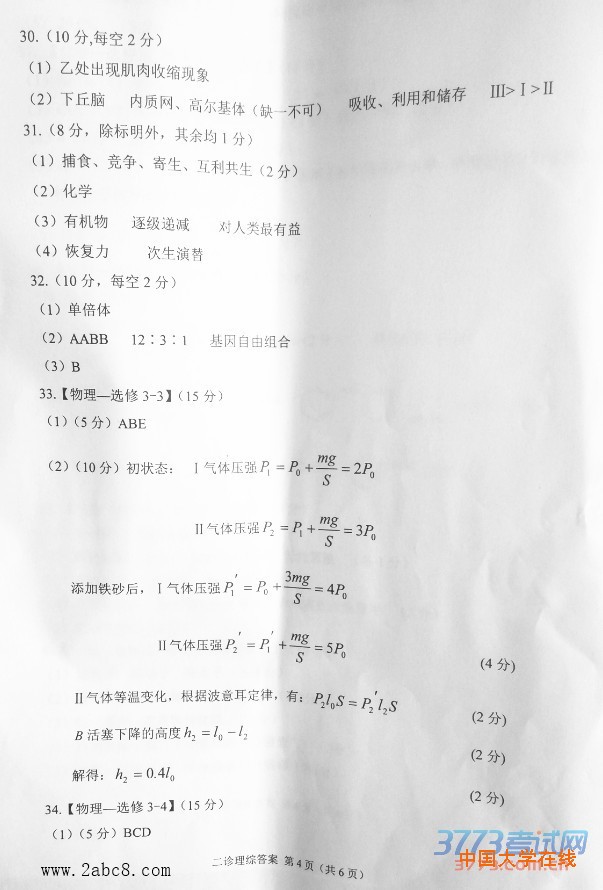 30.（10分,每空2分）
（1）乙处出现肌肉收缩现象
（2）下丘脑 内质网、高尔基体（缺一不可） 吸收、利用和储存 III>I>II
31.（8分，除标明外，其余均1分）
（1）捕食、竞争、寄生、互利共生（2分）
（2）化学
（3）有机物 逐级递减 对人类最有益
（4）恢复力 次生演替
32.（10分，每空2分）
（1）单倍体
（2）AABB 12：3：1 基因自由组合
（3）B
33.【物理—选修3-3】（15分）
（1）（5分）ABE
（2）（10分）初状态： I气体压强P₁ = P₀ + mg/S = 2P₀
II气体压强P₂ = P₁ + mg/S = 3P₀
添加铁砂后，I气体压强P₁′ = P₀ + 3mg/S = 4P₀
II气体压强P₂′ = P₁′ + mg/S = 5P₀
（4分）
II气体等温变化，根据波意耳定律，有：P₂l₀S = P₂′l₂S （2分）
B活塞下降的高度h₂ = l₀ − l₂ （2分）
解得：h₂ = 0.4l₀ （2分）
34.【物理—选修3-4】（15分）
（1）（5分）BCD
二诊理综答案 第4页（共6页）
www.2abc8.com
3773考试网
中国大学在线